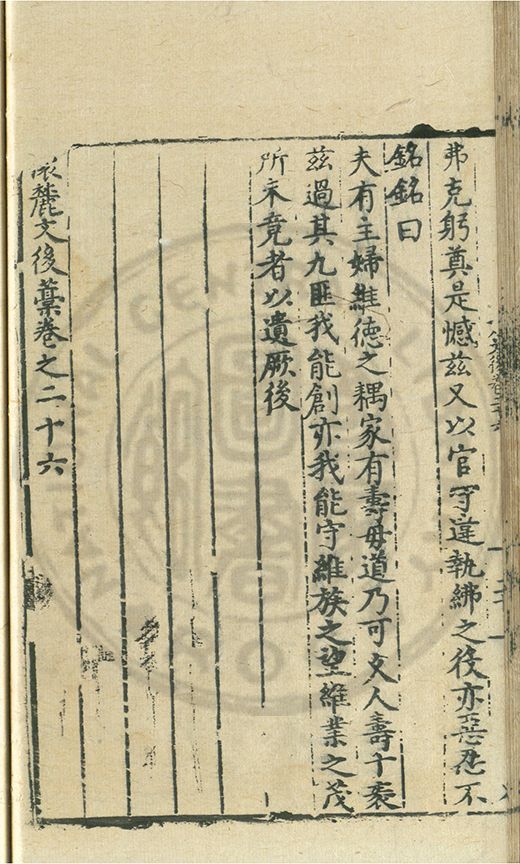 弗克躬奠是憾茲又以官守違執紼之役亦惡忍不
銘銘曰
夫有主婦維德之耦家有壽母道乃可久人壽十袠
茲過其九匪我能創亦我能守維族之望維業之茂
所未竟者以遺厥後
麓文後藁卷之二十六